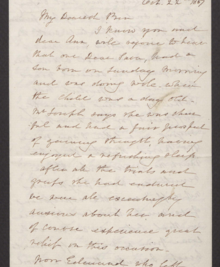 Oct. 22 1867
My Dearest Bro
I know you and
dear Ann will rejoice to hear
that our Dear Jane, had a
son born on Sunday Morning
and was doing well, when
the child was a day old.
Mr Joseph says she was cheer-
ful and had a fair prospect
of gaining strength, having
enjoyed a refreshing sleep
after all the trials and
griefs she had endured
we were all exceedingly
anxious about her and
of course experience great
relief on this occasion.
Poor Edmund who left